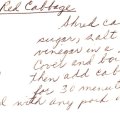 Red Cabbage
Shred ca
sugar, salt
vinegar in a
Cover and boi
then add cab
for 30 minut
d with any pork